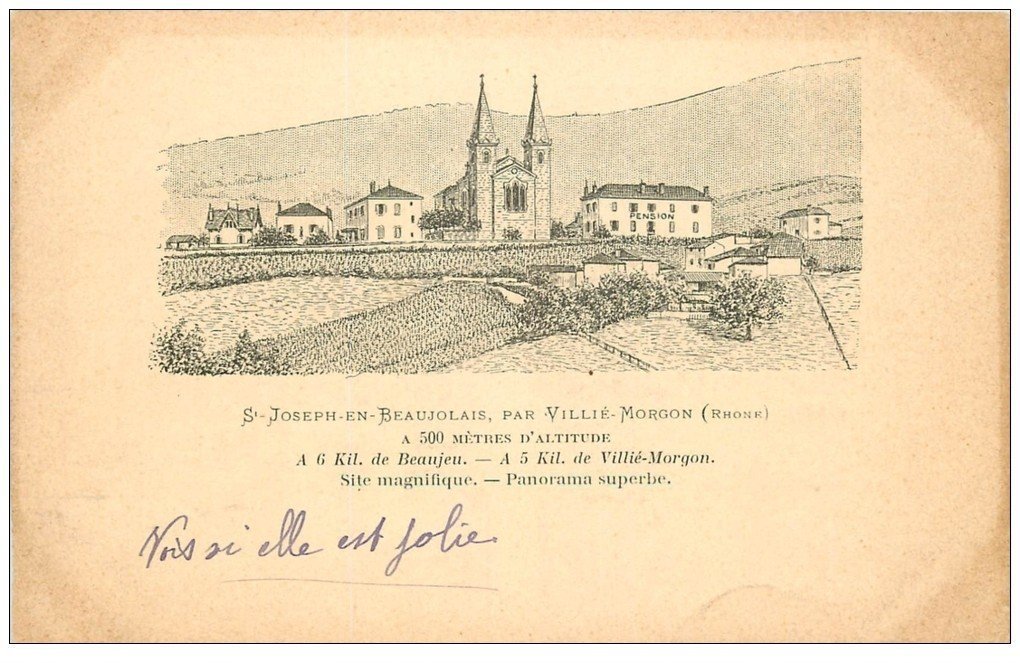 PENSION
St-Joseph-en-Beaujolais, par Villié-Morgon (Rhone)
A 500 MÈTRES D'ALTITUDE
A 6 Kil. de Beaujeu. — A 5 Kil. de Villié-Morgon.
Site magnifique. — Panorama superbe.
Vois si elle est jolie.